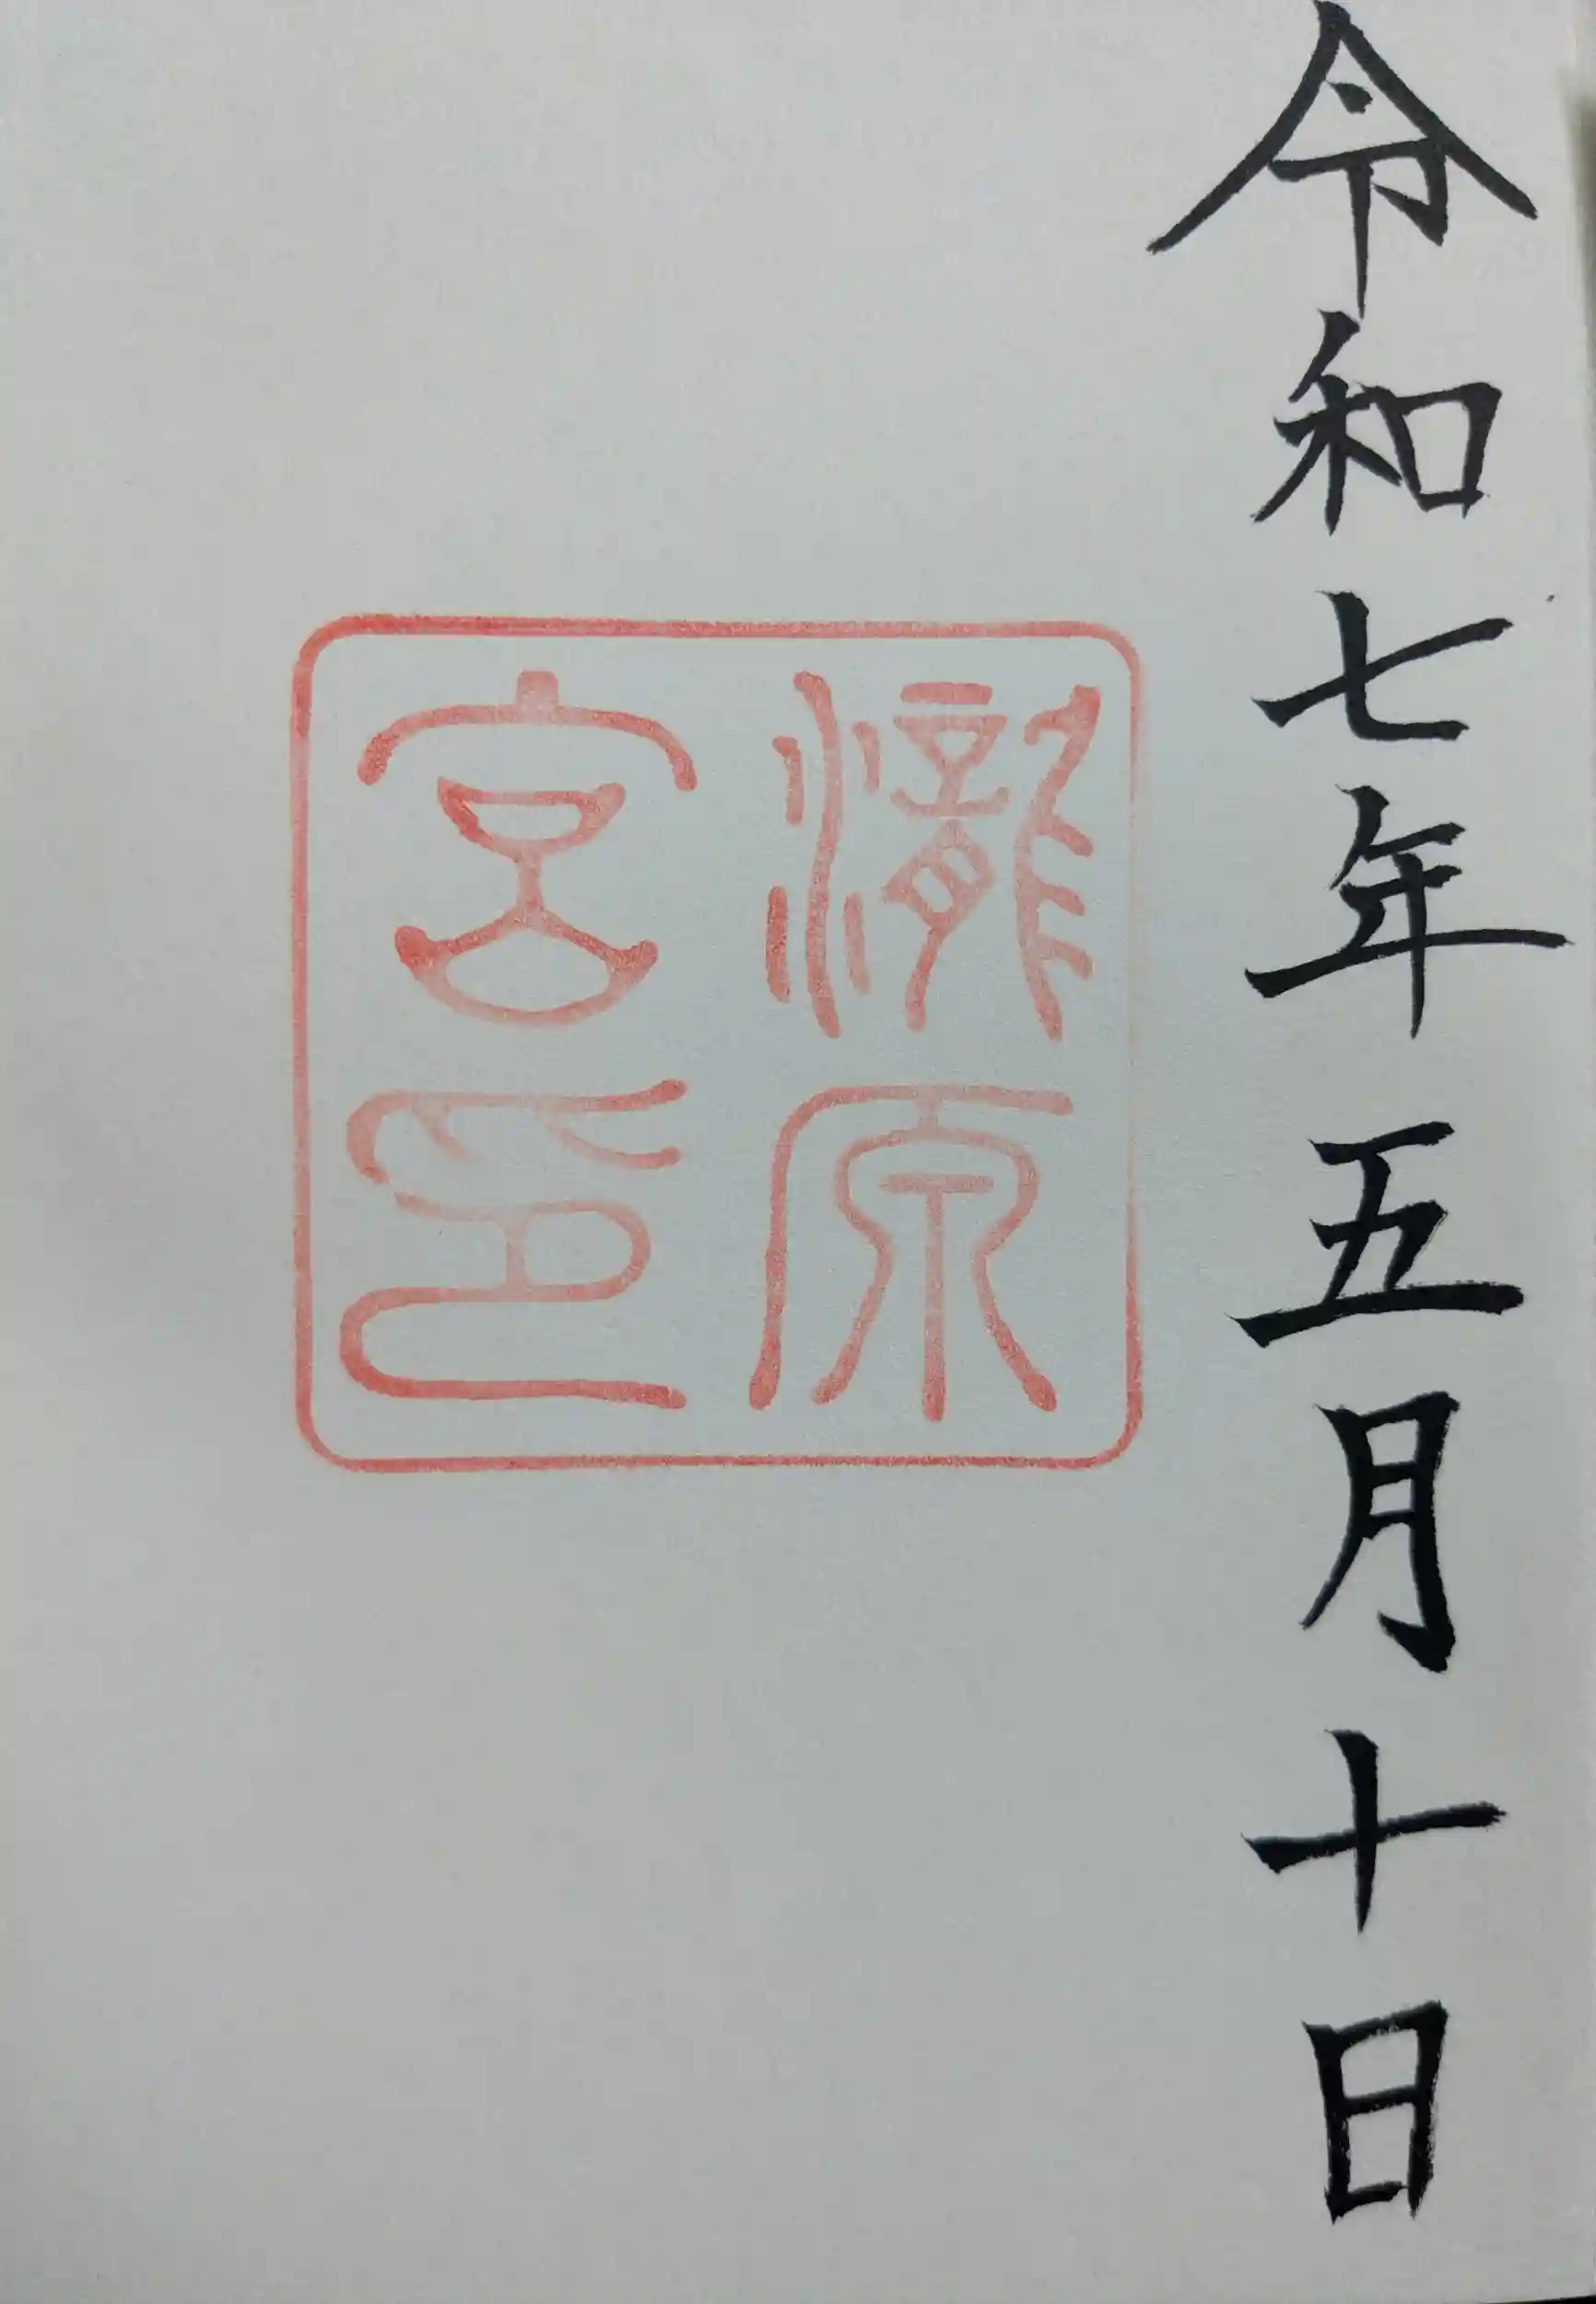 令和七年五月十日
瀧原
宮印